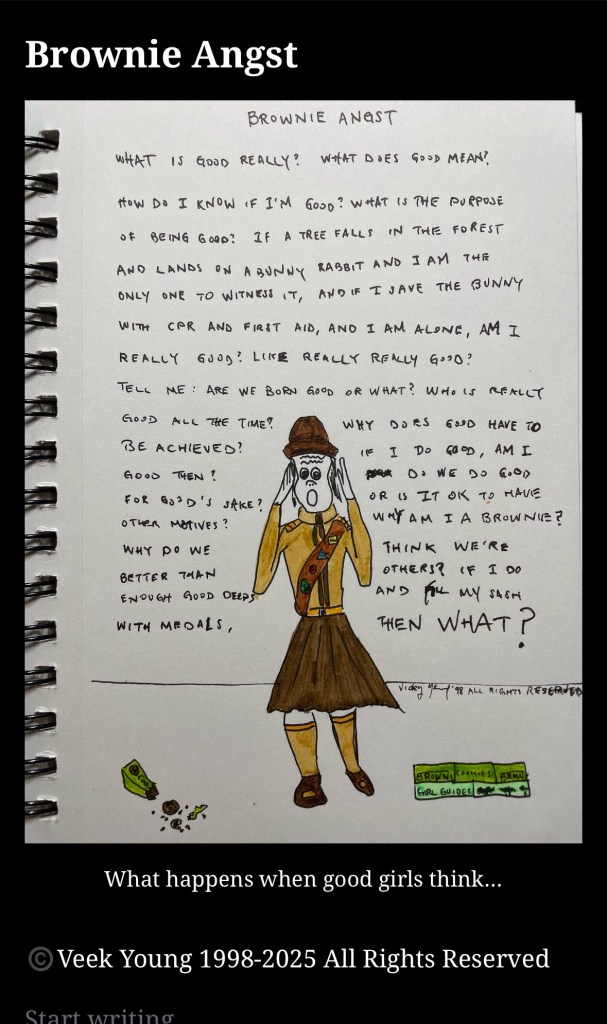 Brownie Angst
BROWNIE ANGST
WHAT IS GOOD REALLY? WHAT DOES GOOD MEAN?
HOW DO I KNOW IF I'M GOOD? WHAT IS THE PURPOSE
OF BEING GOOD? IF A TREE FALLS IN THE FOREST
AND LANDS ON A BUNNY RABBIT AND I AM THE
ONLY ONE TO WITNESS IT, AND IF I SAVE THE BUNNY
WITH CPR AND FIRST AID, AND I AM ALONE, AM I
REALLY GOOD? LIKE REALLY REALLY GOOD?
TELL ME: ARE WE BORN GOOD OR WHAT? WHO IS REALLY
GOOD ALL THE TIME? WHY DOES GOOD HAVE TO
BE ACHIEVED? IF I DO GOOD, AM I
GOOD THEN? DO WE DO GOOD
FOR GOOD'S SAKE? OR IS IT OK TO HAVE
OTHER MOTIVES? WHY AM I A BROWNIE?
WHY DO WE THINK WE'RE
BETTER THAN OTHERS? IF I DO
ENOUGH GOOD DEEDS AND FILL MY SASH
WITH MEDALS, THEN WHAT?
Vicky '98 ALL RIGHTS RESERVED
COOKIES
GIRL GUIDES
What happens when good girls think...
© Veek Young 1998-2025 All Rights Reserved
Start writing